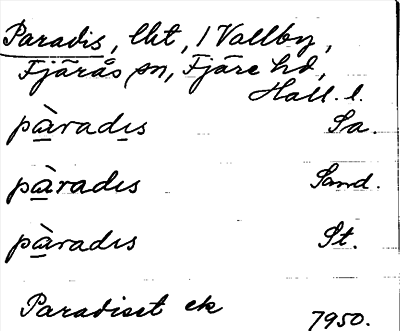 Paradis, lht, 1 Vallby,
Fjärås sn, Fjäre hd,
Hall. l.
pàradıs Sa.
pàradıs Sand.
pàradıs St.
Paradiset ek 7950.